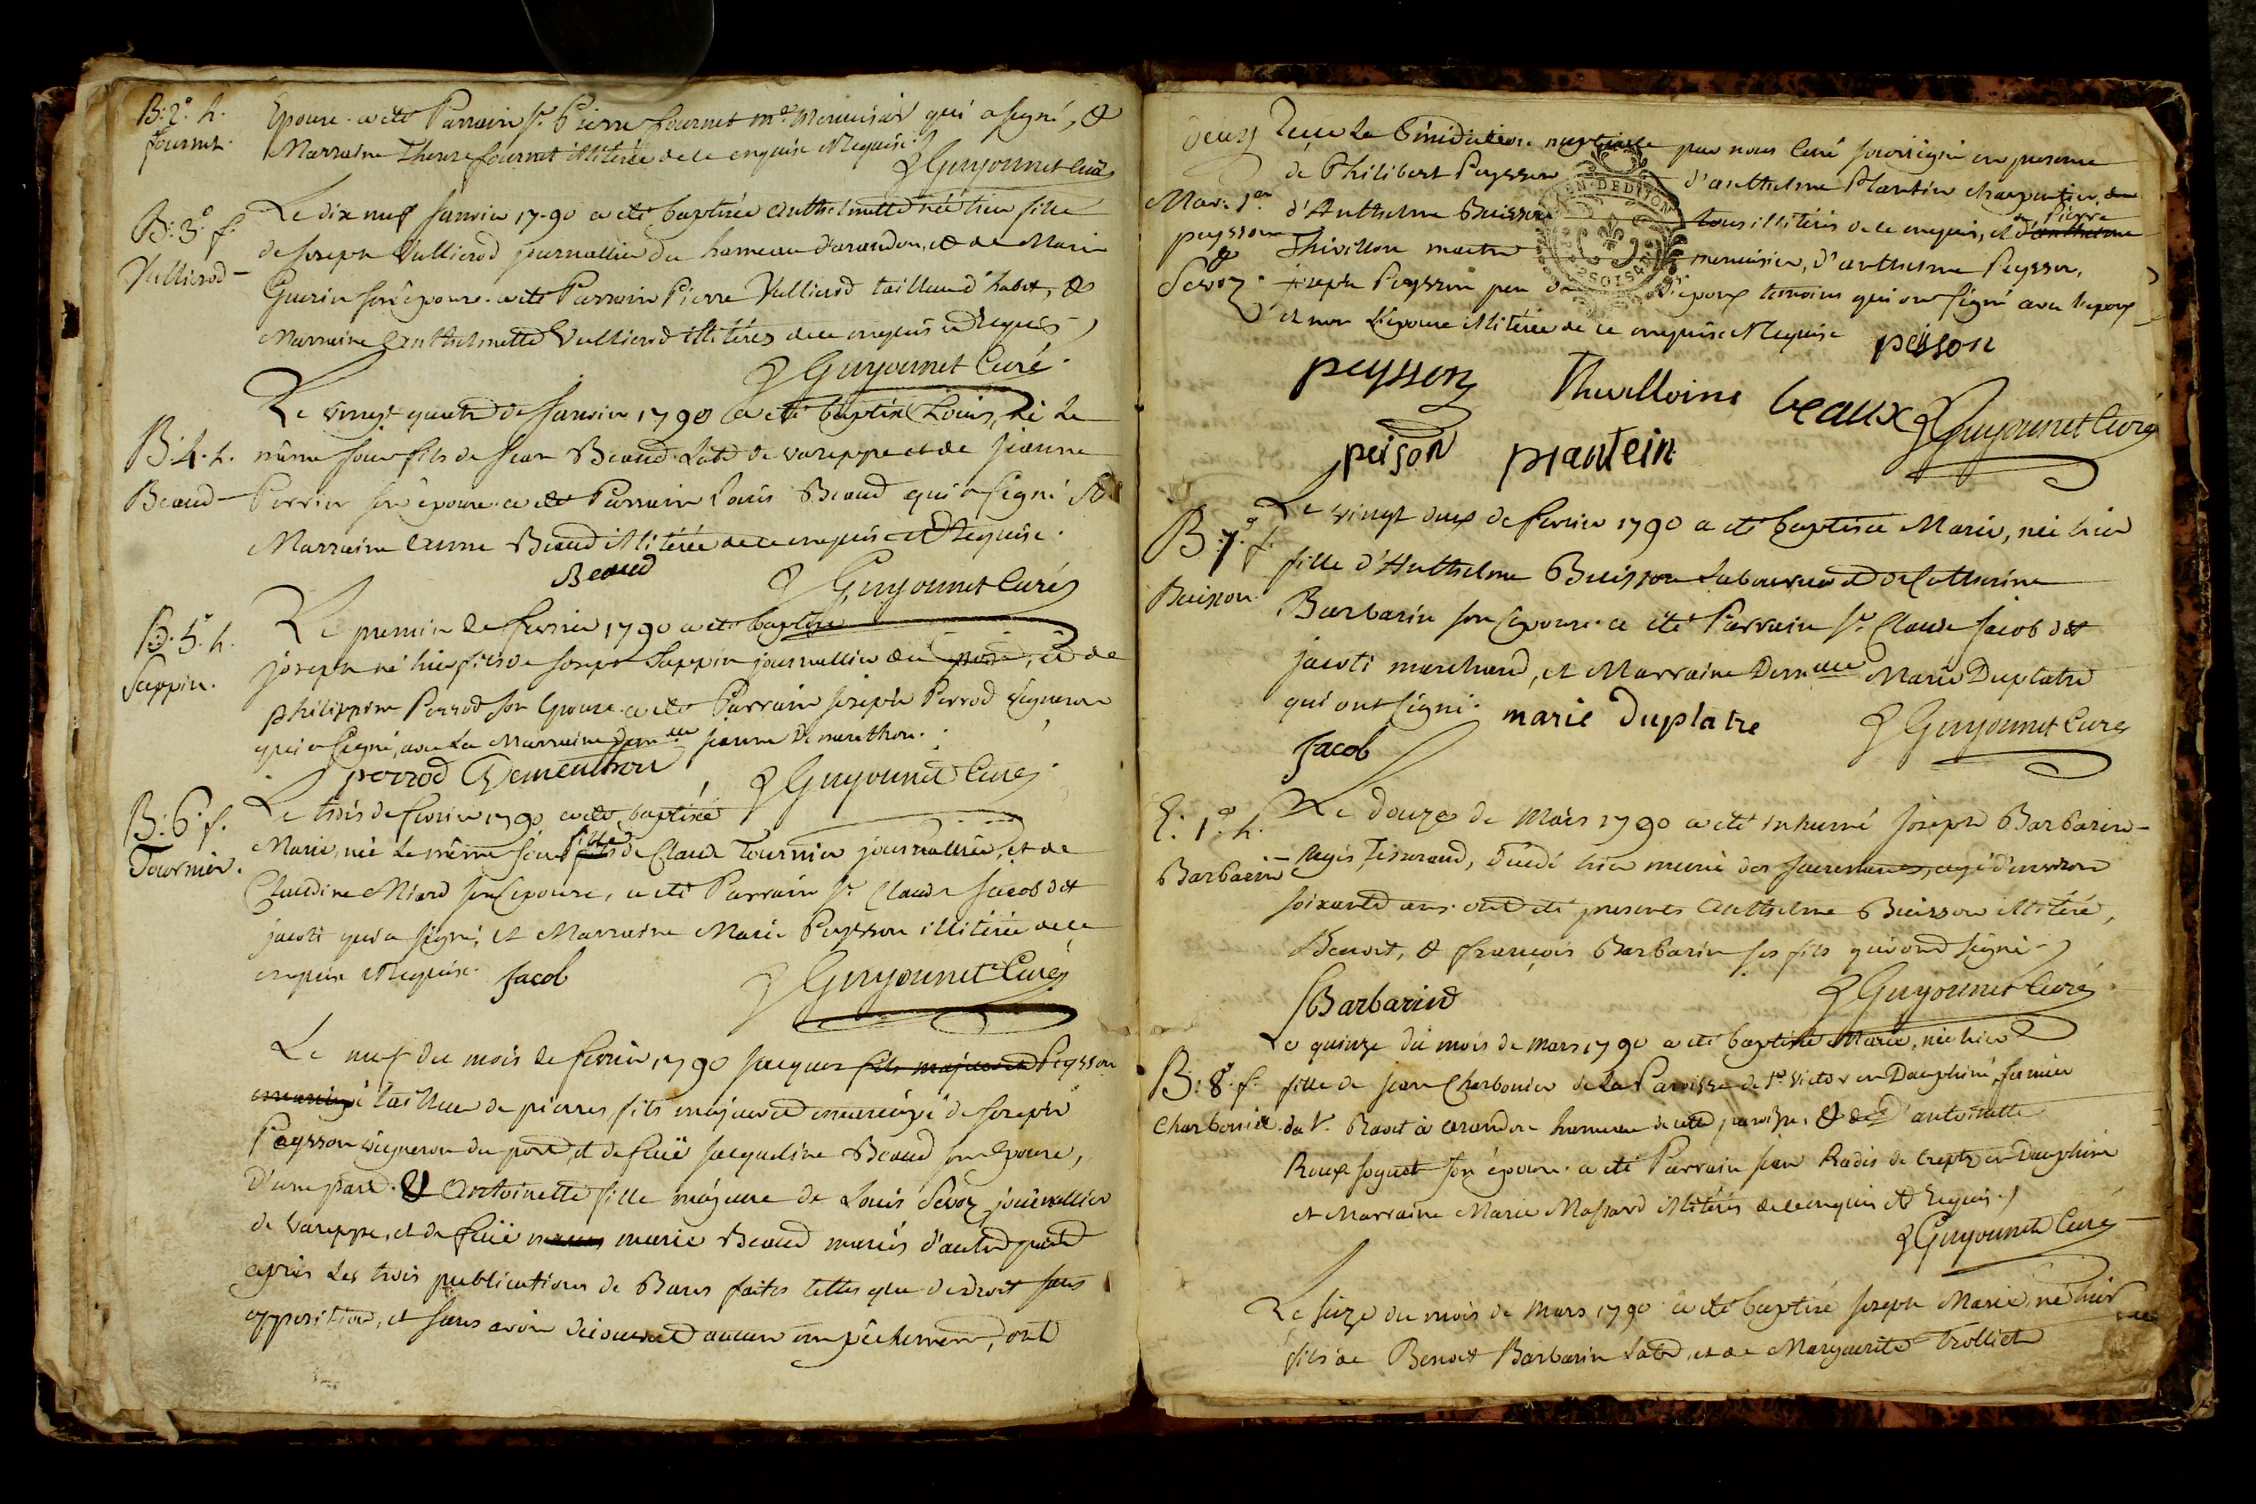 B: 2.e h.
fournet.
Epouse. a été Parrain Sr. Pierre fournet md. Menuisier qui a signé, &
Marraine Therese fournet illiterée de ce enquise et Requise.
Guyounet Curé
B: 3.e f.
Vullierod
Le dix neuf Janvier 1790 a été baptisée Anthelmette née hier fille
de Joseph Vullierod journallier du hameau d'arandon, et de Marie
Guerin son épouse. a été Parrain Pierre Vullierod tailleur d'habit, &
Marraine Anthelmette Vullierod illitérés de ce enquis et Requis
Guyounet Curé.
B: 4. h.
Beaud
Le vingt quatre de Janvier 1790 a été baptisé Louis, né le
même jour fils de Jean Beaud Lab. de vareppe et de Jeanne
Perrier son épouse. a été Parrain Louis Beaud qui a signé &
Marraine Anne Beaud illitérée de ce enquise et Requise.
Beaud
Guyounet Curé
B: 5.e h.
Sappin.
Le premier de fevrier 1790 a été baptisé
joseph né hier fils de Joseph Sappin journallier du port, et de
philippine Perrod son Epouse. a été Parrain Joseph Perrod vigneron
qui a signé, avec la Marraine Demlle jeanne Dementhon.
perrod Dementhon
Guyounet Curé
B: 6.e f.
Tournier.
Le trois de fevrier 1790 a été baptisée
Marie, née le même jour fille de Claude Tournier journallier, et de
Claudine Miard son Epouse, a été Parrain Sr. Claude Jacob dit
jacoti qui a signé, et Marraine Marie Peysson illitérée de ce
enquise et Requise.
Jacob
Guyounet Curé
Le neuf du mois de fevrier 1790 Jacques fils majeur et Peysson
emancipé tailleur de pierres fils majeur et emancipé de Joseph
Peysson vigneron du port, et de fuë Jacqueline Beaud son Epouse,
D'une part. & Antoinette fille majeure de Louis Sevoz journallier
de vareppe, et de fuë marie Beaud mariés d'autre part
après les trois publications de Bans faites telles que de droit sans
opposition, et sans avoir découvert aucun empêchement, ont
deux
Mar: 1.er
peysson
&
Sevoz.
Reçu la Bénédiction nuptiale par nous Curé soussigné en presence
de Philibert Peysson d'anthelme Plantin charpentier, de
d'Anthelme Buisson tous illitérés de ce enquis, et d'anthelme Pierre
Thivillon maitre menuisier, d'anthelme Peysson,
joseph Peysson pere de l'epoux temoins qui ont signé avec l'epoux
et non l'épouse illitérée de ce enquise et Requise
peisson
peysson
Thuilloine
beaux
Guyounet Curé
peison
plantein
B: 7.e f.
Buisson.
Le vingt deux de fevrier 1790 a été baptisée Marie, née hier
fille d'Anthelme Buisson Laboureur et de Catherine
Barbarin son Epouse. a été Parrain Sr. Claude Jacob dit
jacoti marchand, et Marraine Demlle Marie Duplatre
qui ont signé.
marie Duplatre
Jacob
Guyounet Curé
E: 1.e h.
Barbarin
Le douze de Mars 1790 a été inhumé Joseph Barbarin-
Regis, Tisserand, décédé hier munie des sacremens, agé d'environ
soixante ans. ont été presents Anthelme Buisson illitéré,
Benoit, & françois Barbarin ses fils qui ont signé.
Barbarin
Guyounet Curé
B: 8.e f.
Charbonier.
Le quinze du mois de mars 1790 a été baptisée Marie, née hier
fille de jean Charbonier de la Paroisse de St. Victor en Dauphiné, fermier
du Sr. Ravet à arandon hameau de cette paroisse, & d'antoinette
Roux soguet son épouse. a été Parrain jean Radis de Crept en Dauphiné
et Marraine Marie Massard illitérés de ce enquis et Requis.
Guyounet Curé
Le seize du mois de mars 1790 a été baptisé Joseph Marie, né hier
fils de Benoit Barbarin Lab. et de Marguerite Trolliet